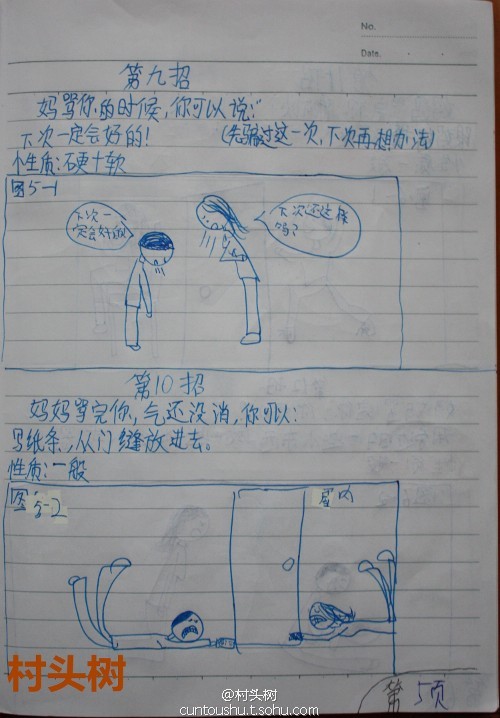 No.
Date.
第九招
妈骂你的时候,你可以说:"
下次一定会好的! (先骗过这一次,下次再想办法)
性质:硬+软
图5-1
下次一
定会好的
下次还这样
吗?
第10招
妈妈骂完你,气还没消,你可以:
写纸条,从门缝放进去。
性质:一般
图5-2
屋内
村头树
第5页
@村头树
cuntoushu.t.sohu.com